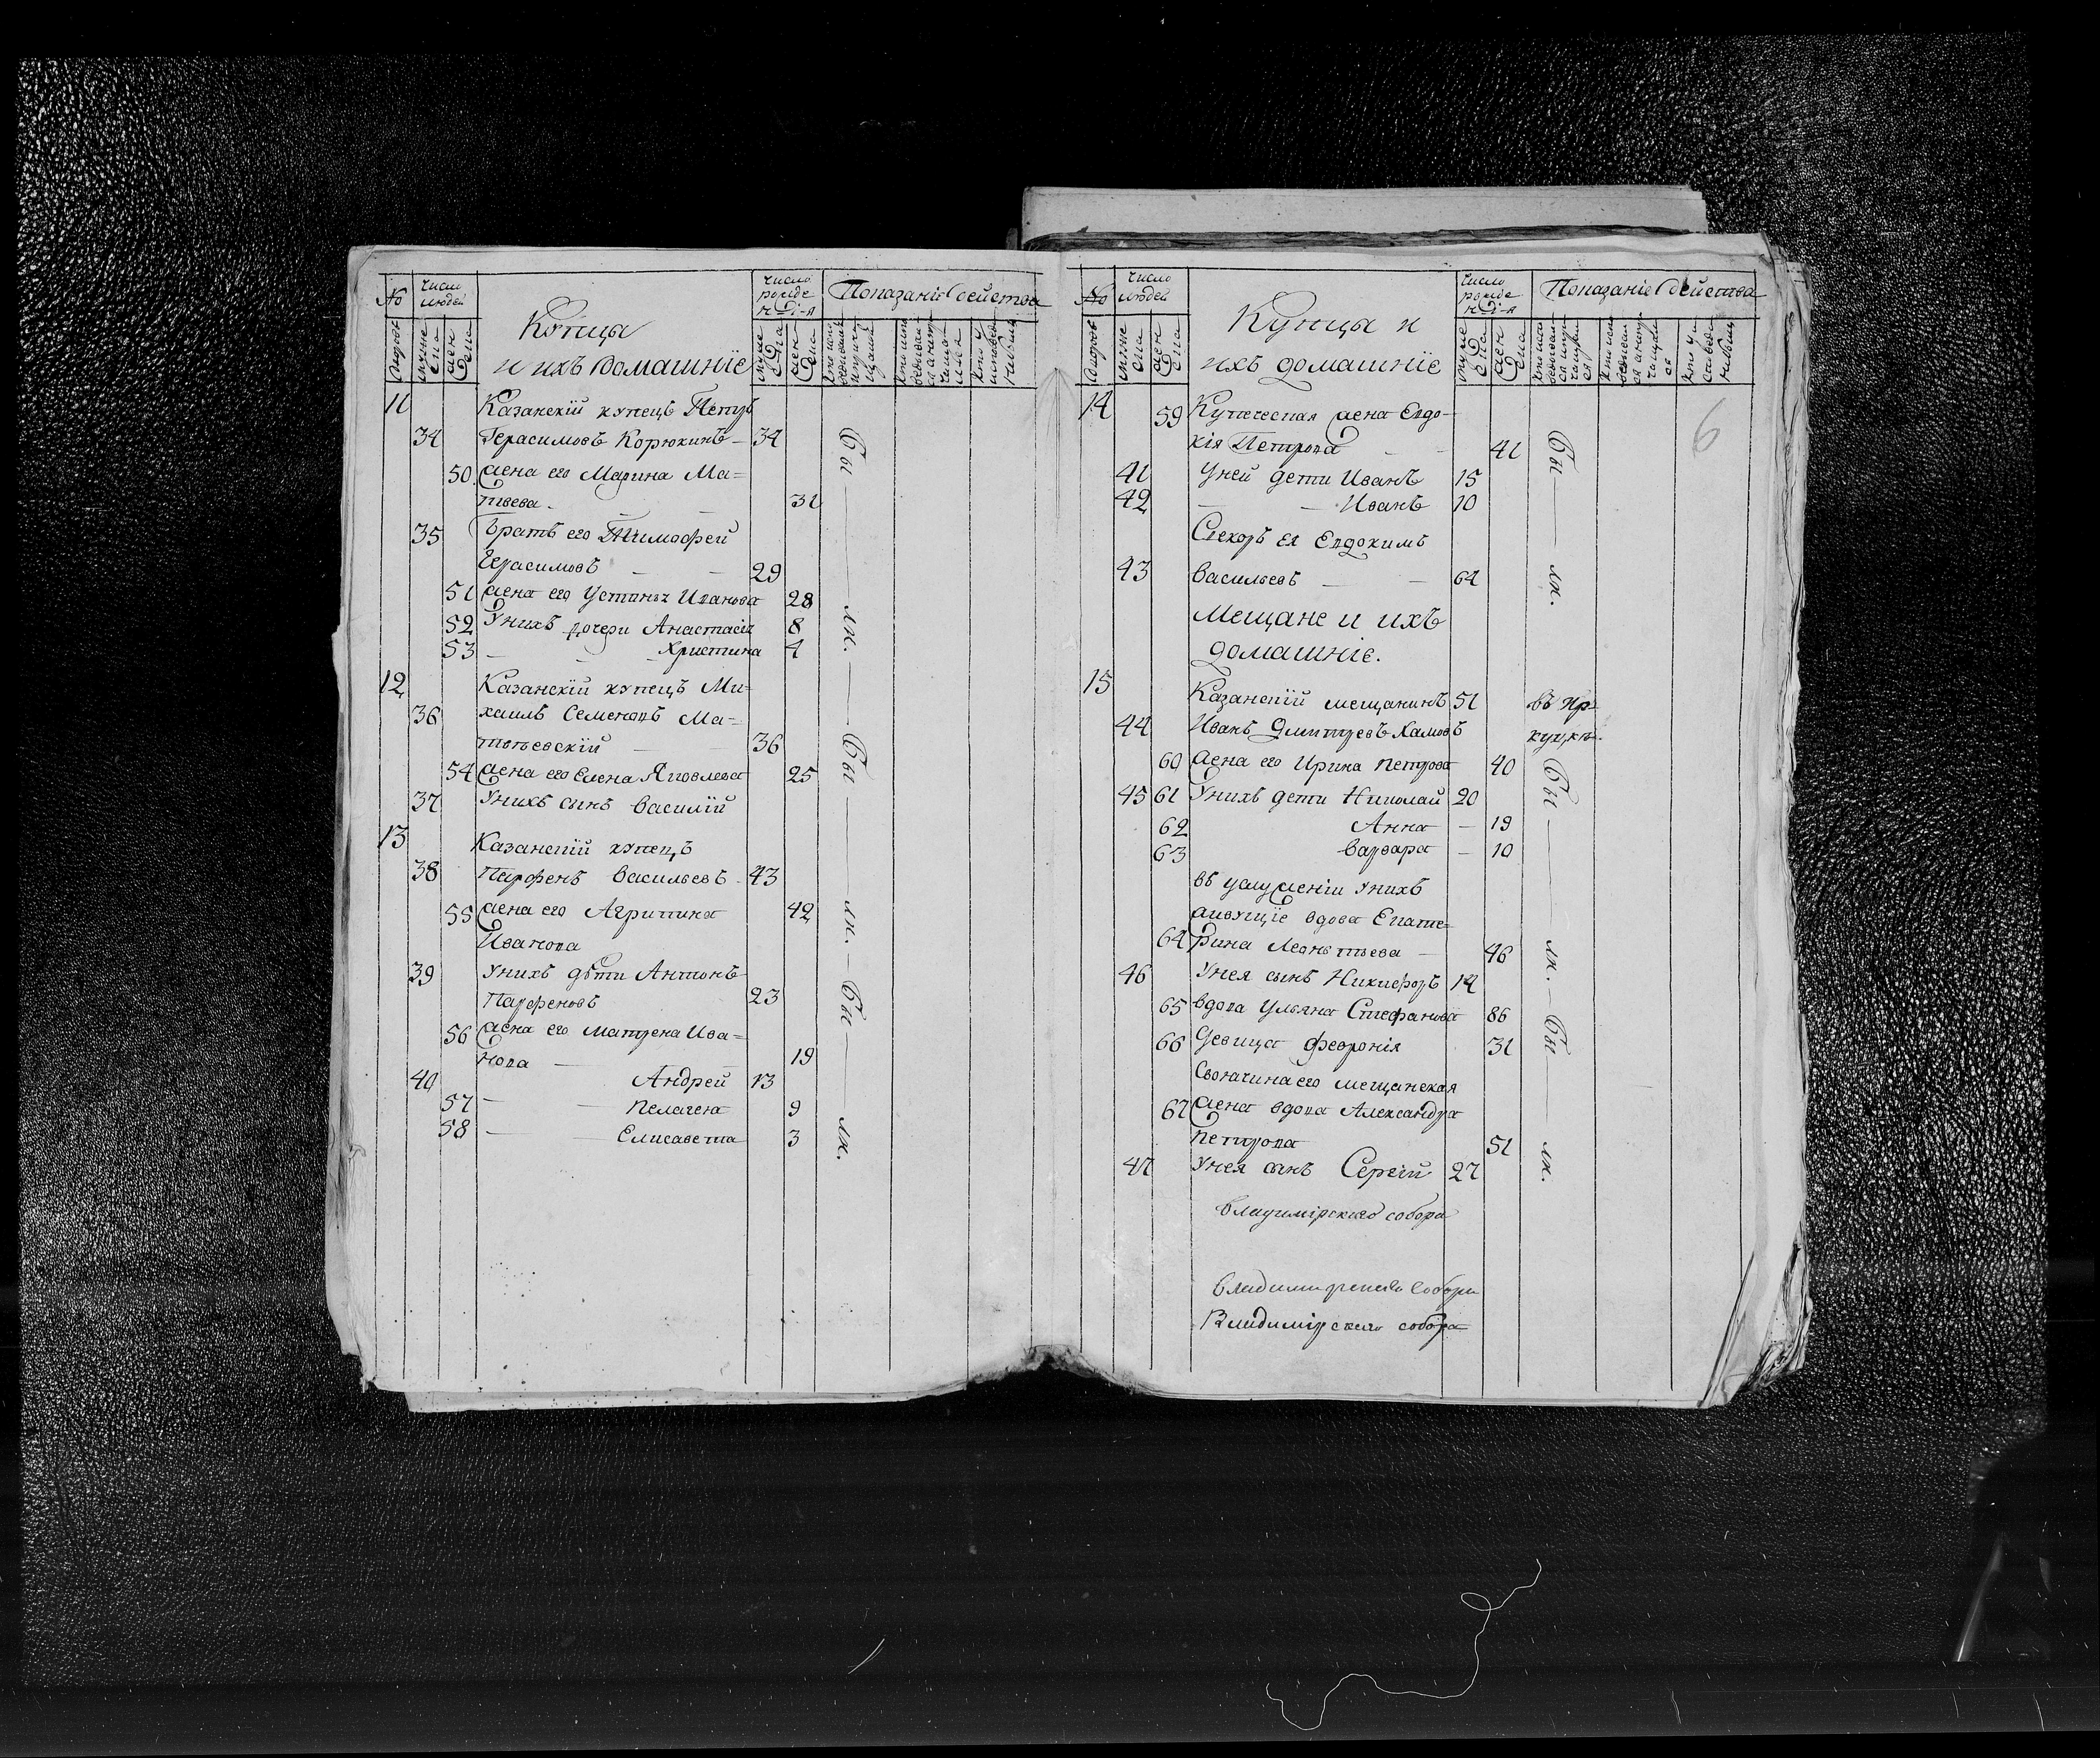 No Число людей Купцы и ихъ домашніе Число рожденія Показаніе действа
11 Казанскій купецъ Петръ
34 Герасимовъ Корюкинъ — 34
50 жена его Марина Ма=
твеева — — 31
35 Братъ его Тимофей
Герасимовъ — — 29
51 жена его Устинья Иванова 28
52 Унихъ дочери Анастасія 8
53 — — Христина 4
12 Казанскій купецъ Ми=
36 хаилъ Семеновъ Ма=
твеевскій — 36
54 жена его Елена Яковлева 25
37 Унихъ сынъ Василій
13 Казанскій купецъ
38 Парфенъ Васильевъ 43
55 жена его Агрипина 42
Иванова
39 Унихъ дѣти Антонъ
Парфеновъ 23
56 жена его Матрена Ива=
нова — 19
40 Андрей 13
57 — — Пелагея 9
58 — — Елисавета 3
Бы — лк. — Бы — лк. — Бы — лк.
No Число людей Купцы и ихъ домашніе Число рожденія Показаніе действа
6
14 59 Купеческая жена Евдо-
кія Петрова — — 41
41 Уней дети Иванъ 15
42 — — Иванъ 10
Свекоръ ея Евдокимъ
43 Васильевъ — — 64
Мещане и ихъ
домашніе.
15 Казанскій мещанинъ 51
44 Иванъ Дмитревъ Хамовъ
60 жена его Ирина Петрова 40
45 61 Унихъ дети Николай 20
62 Анна — 19
63 Варвара — 10
живущіе вдова Екате=
64 рина Леонтьева — 46
46 Унея сынъ Никифоръ 14
65 вдова Ульяна Стефанова 86
66 Девица Феѵронія 31
мещанская
67 жена вдова Александра
Петрова 51
47 Унея сынъ Сергій 27
Бы — лк. Бы — лк. — Бы — лк.
Владимірскаго собора
Владимирскаго Собора
Владимірскаго собора